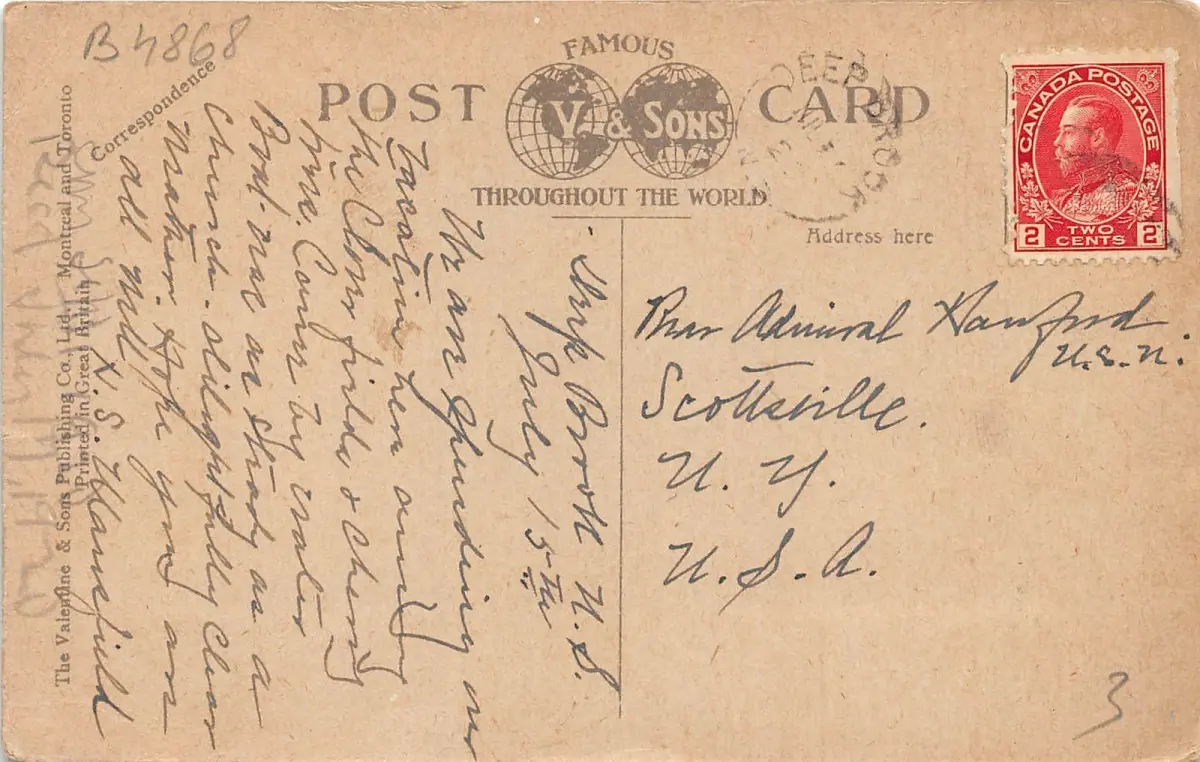 B 4868
Correspondence
FAMOUS
POST CARD
V. & SONS
THROUGHOUT THE WORLD
Address here
DEEP BROOK
CANADA POSTAGE
2 TWO CENTS 2
Deep Brook N.S.
July 15th
We are spending our
vacation here among
the Clover fields & cherry
time. Came by water
Boat was as steady as a
church - delightfully clear
weather. Hope you are
all well
H. S. Mansfield
Rear Admiral Hanford
U.S.N.
Scottsville.
N. Y.
U. S. A.
3
The Valentine & Sons Publishing Co., Ltd., Montreal and Toronto
Printed in Great Britain